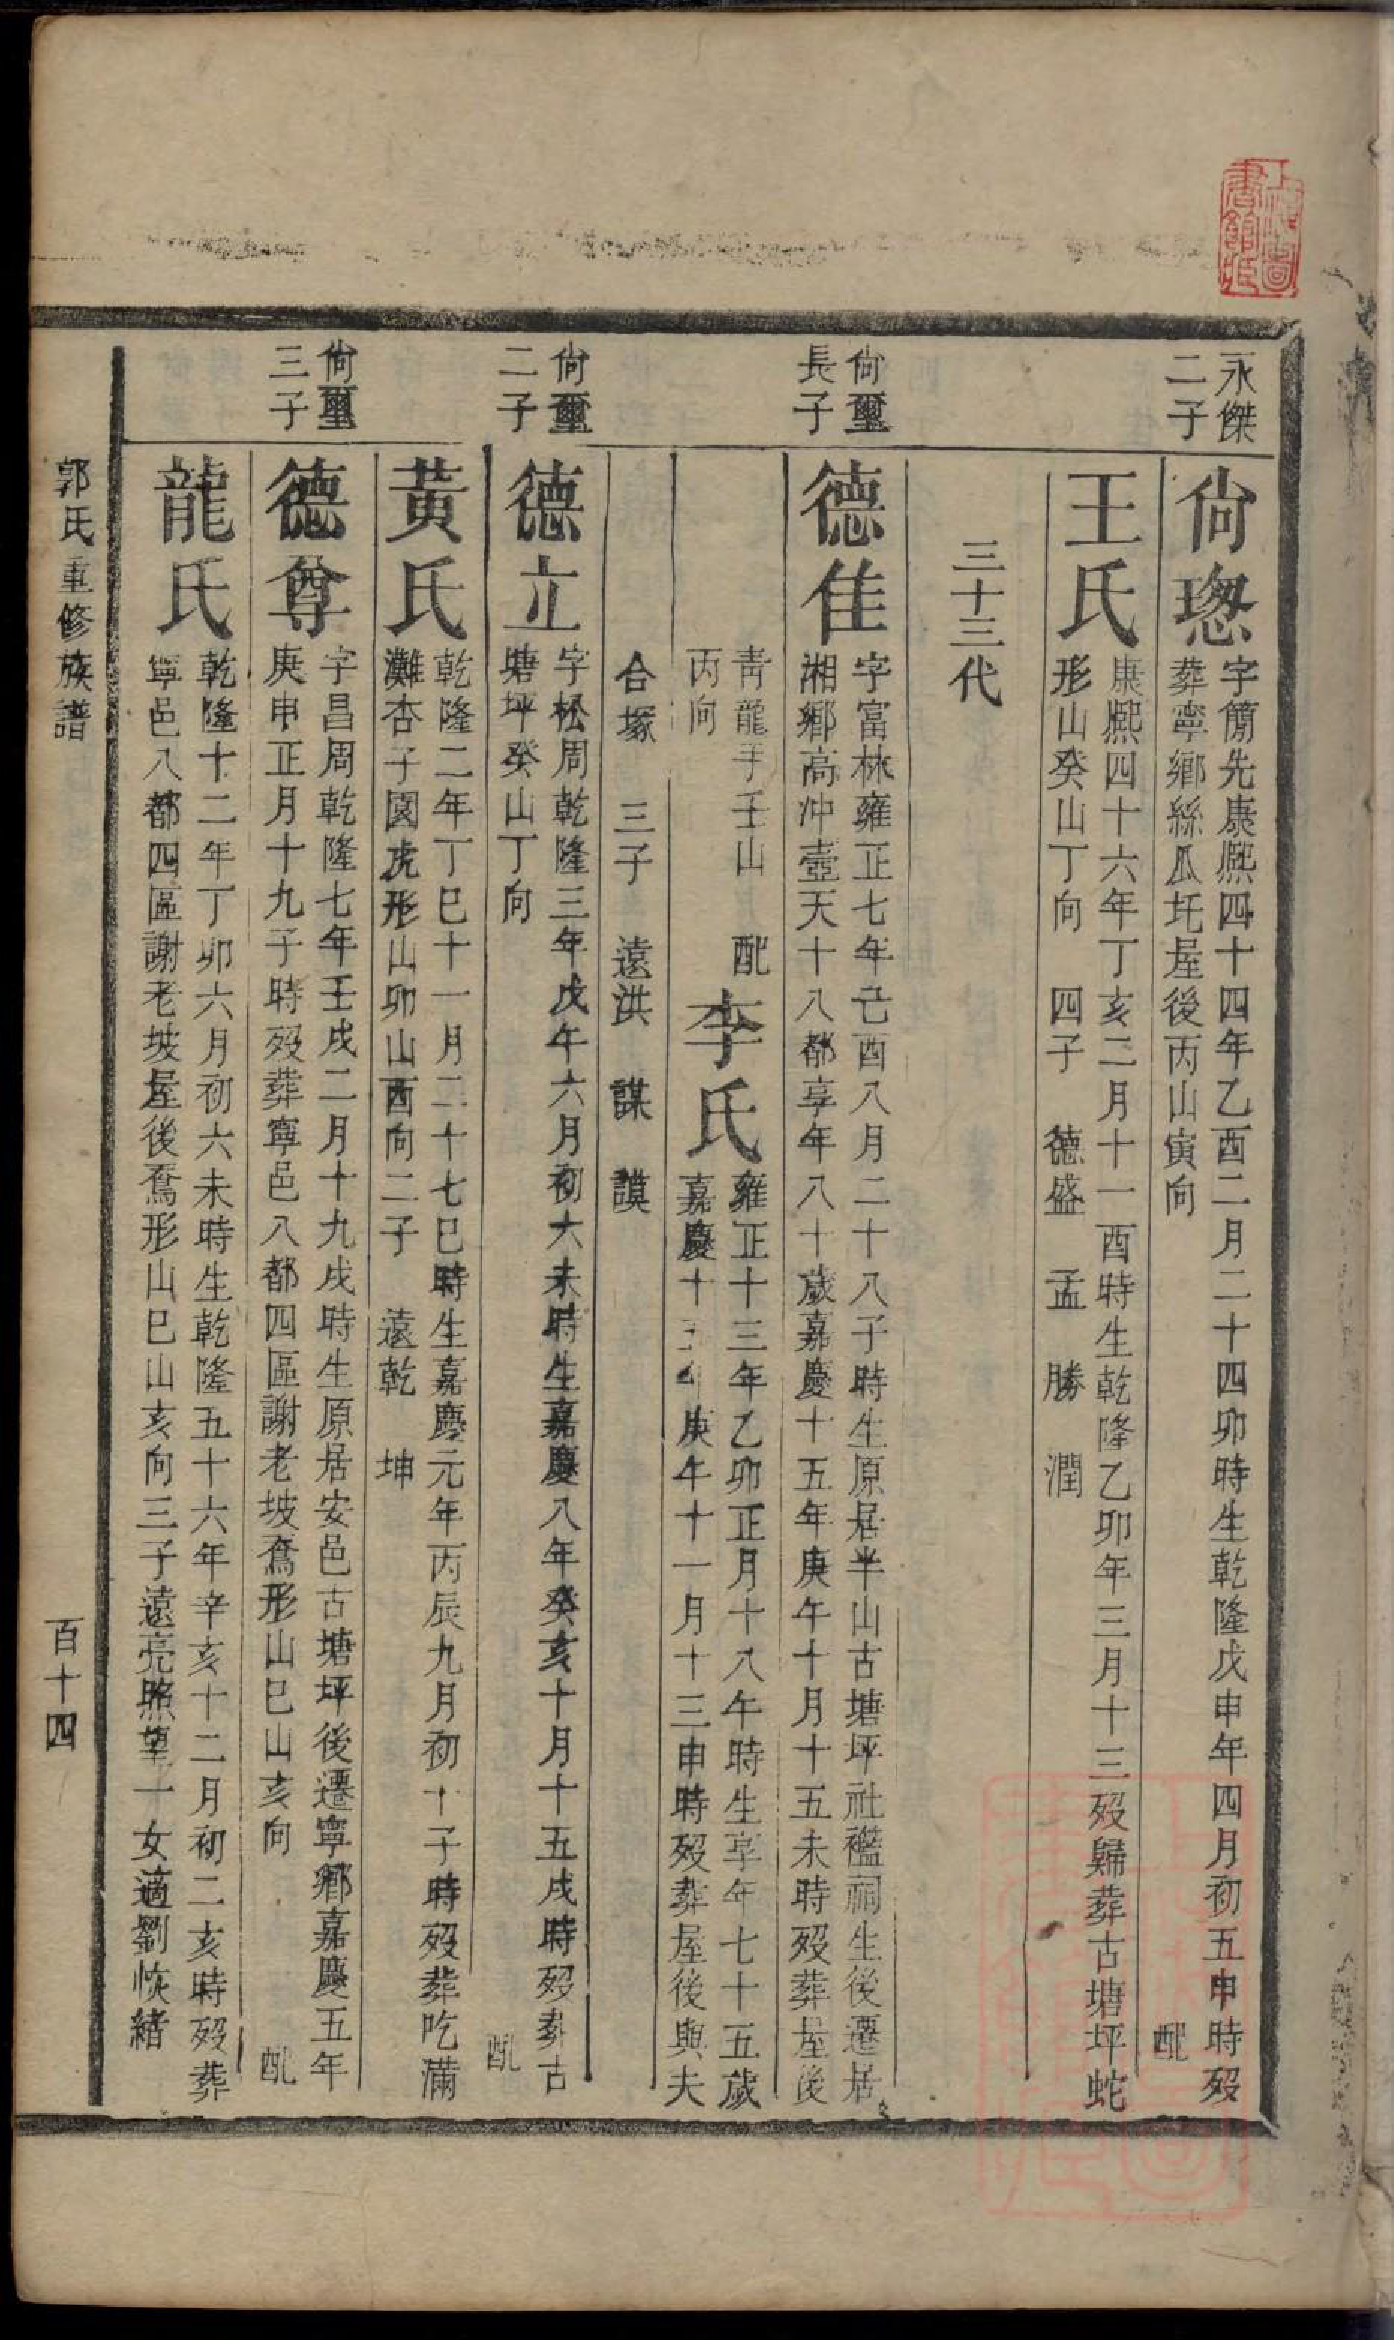 永傑
二子
尚璁
字簡先康熙四十四年乙酉二月二十四卯時生乾隆戊申年四月初五申時歿
葬寧鄉絲瓜圫屋後丙山寅向 配
王氏
康熙四十六年丁亥二月十一酉時生乾隆乙卯年三月十三歿歸葬古塘坪蛇
形山癸山丁向 四子 德盛 孟 勝 潤
三十三代
尚璽
長子
德佳
字富林雍正七年己酉八月二十八子時生原居半山古塘坪社襤祠生後遷居
湘鄉高冲壺天十八都享年八十歲嘉慶十五年庚午十月十五未時歿葬屋後
青龍手壬山
丙向
配
李氏
雍正十三年乙卯正月十八午時生享年七十五歲
嘉慶十五年庚午十一月十三申時歿葬屋後與夫
合塚 三子 遠洪 謀 謨
尚璽
二子
德立
字松周乾隆三年戊午六月初六未時生嘉慶八年癸亥十月十五戌時歿葬古
塘坪癸山丁向 配
黃氏
乾隆二年丁巳十一月二十七巳時生嘉慶元年丙辰九月初十子時歿葬吃滿
灘杏子園虎形山卯山酉向二子 遠乾 坤
尚璽
三子
德尊
字昌周乾隆七年壬戌二月十九戌時生原居安邑古塘坪後遷寧鄉嘉慶五年
庚申正月十九子時歿葬寧邑八都四區謝老坡鴦形山巳山亥向 配
龍氏
乾隆十二年丁卯六月初六未時生乾隆五十六年辛亥十二月初二亥時歿葬
寧邑八都四區謝老坡屋後鴦形山巳山亥向三子遠亮照望一女適劉恢緒
郭氏重修族譜
百十四
上海圖
書館藏